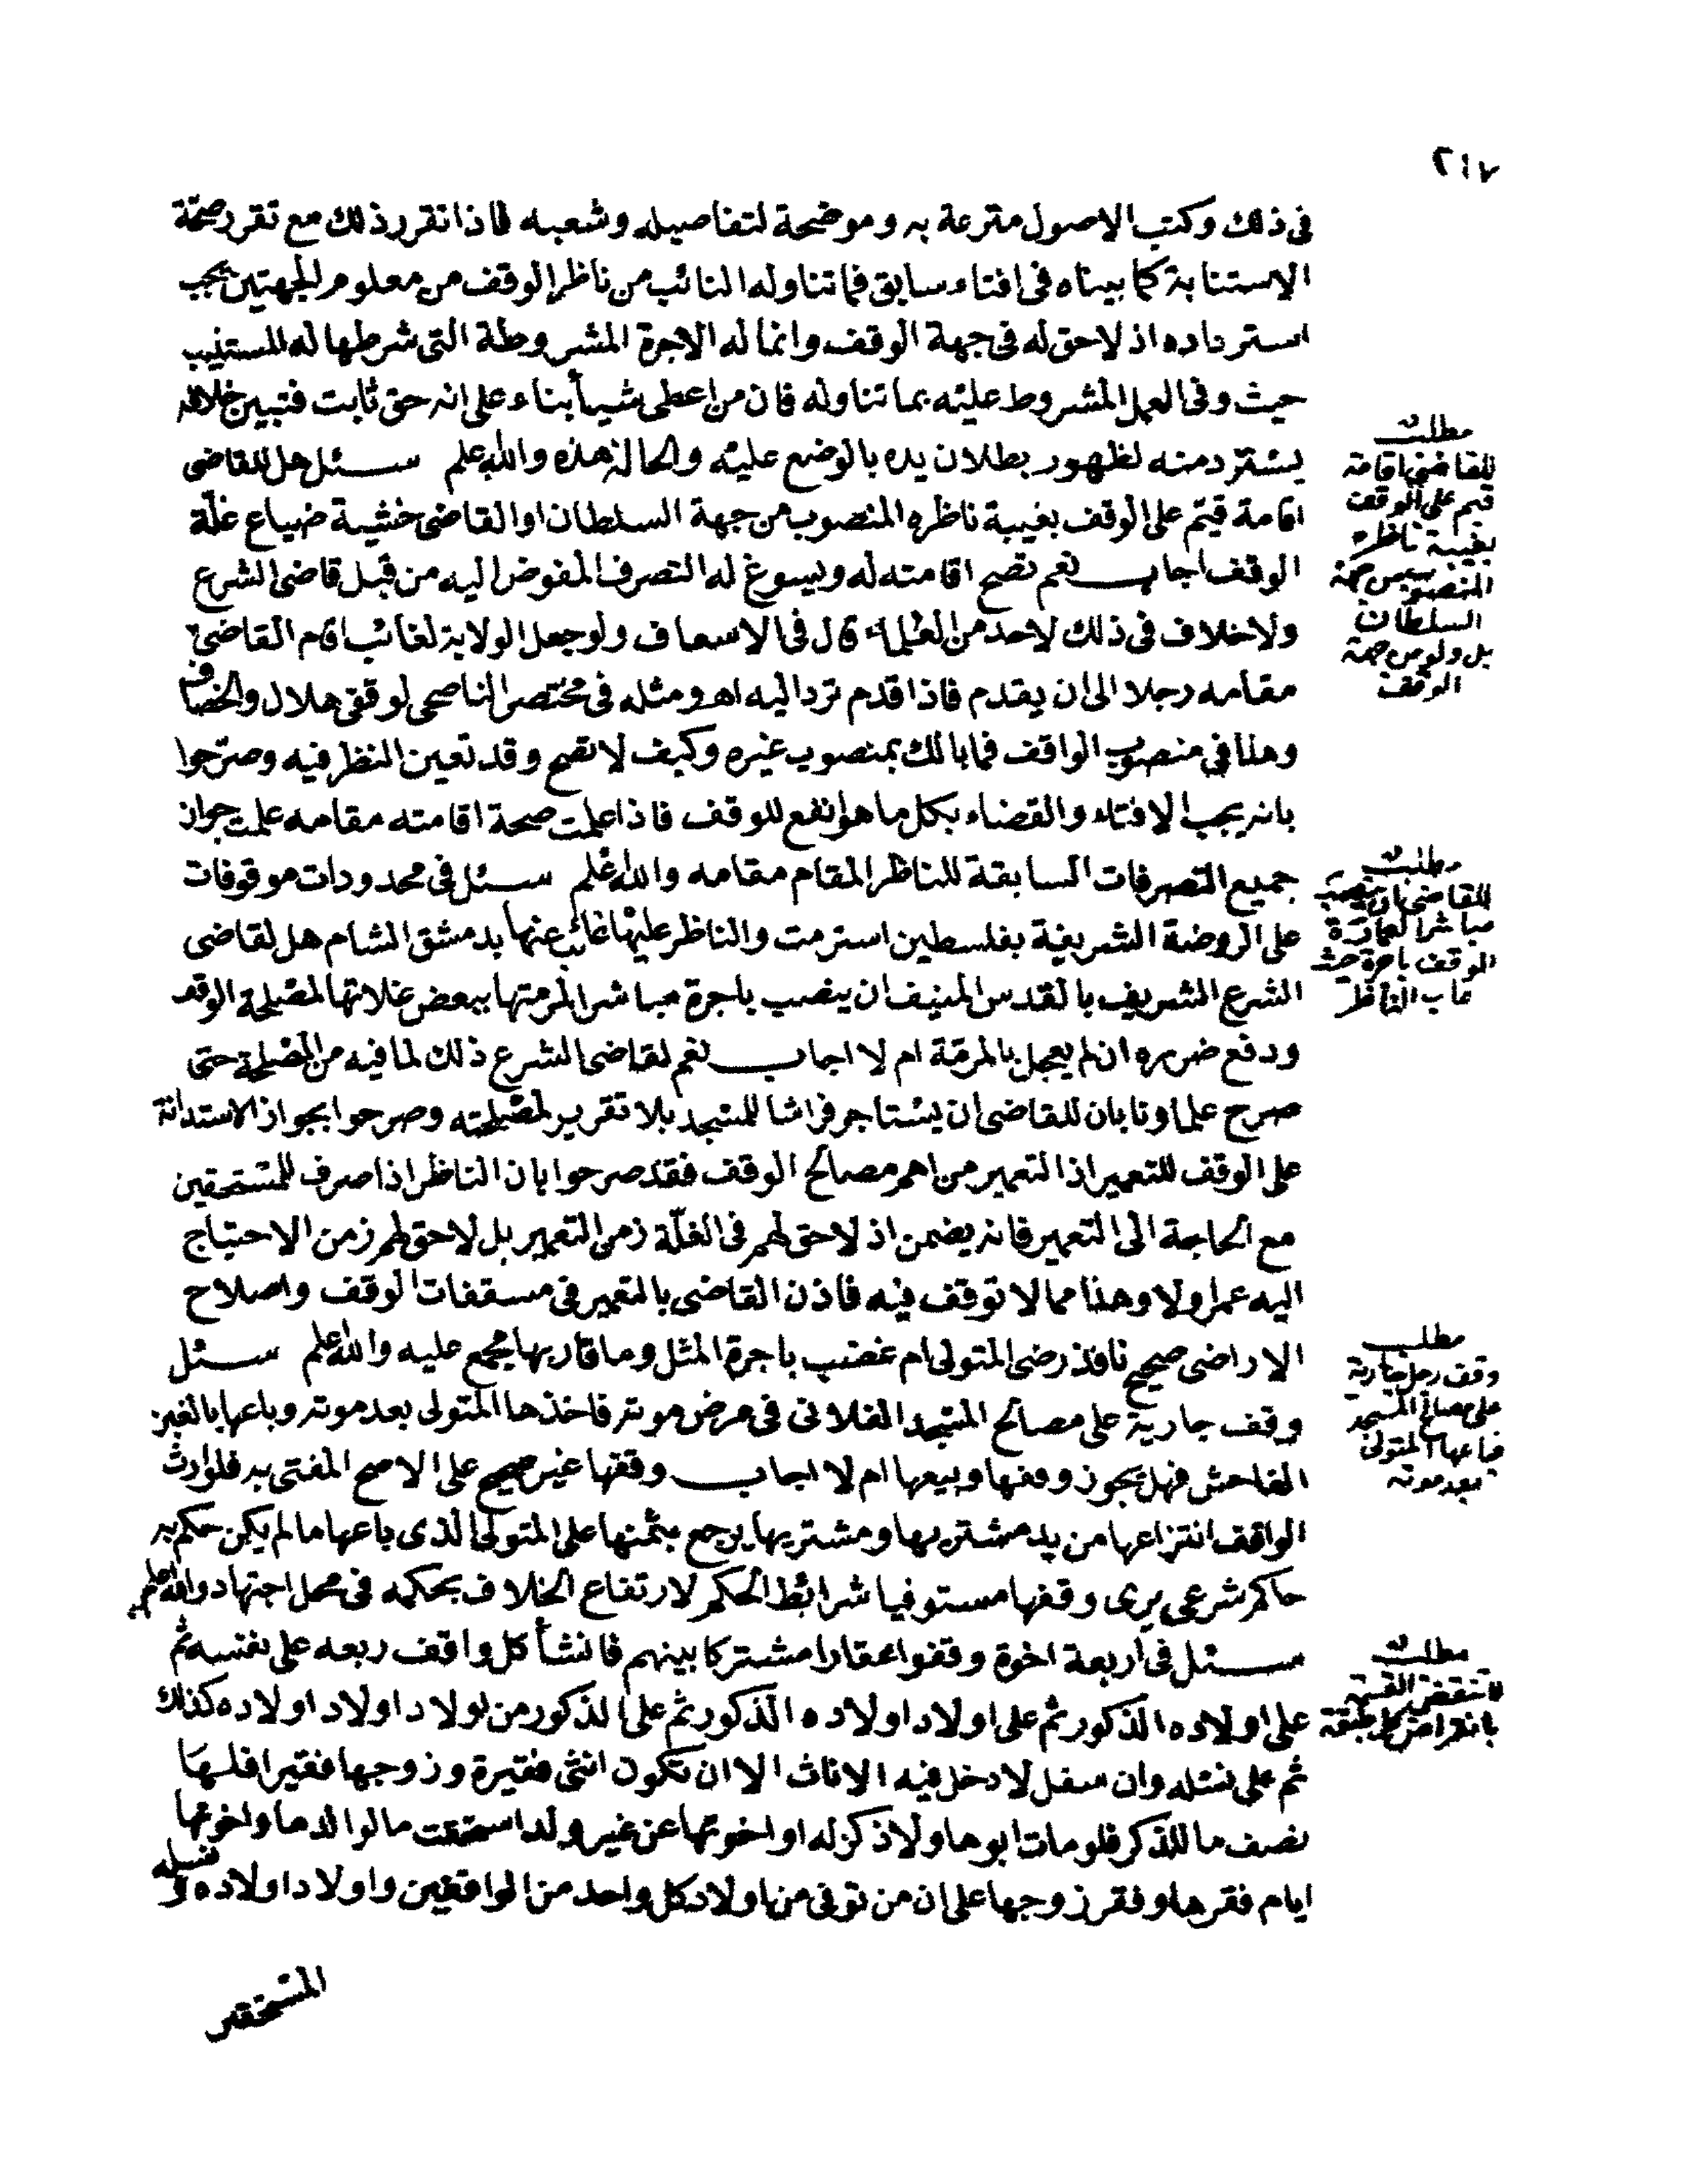 ٢١٧
فى ذلك وكتب الاصول مترعة به وموضحة لتفاصيله وشعبه فاذا تقرر ذلك مع تقرر صحة
الاستنابة كما بيناه فى افتاء سابق فما تناوله النائب من ناظر الوقف من معلوم الجهتين يجب
استرداده اذ لاحق له فى جهة الوقف وانما له الاجرة المشروطة التى شرطها له المستنيب
حيث وفى العمل المشروط عليه بما تناوله فان من اعطى شيأ بناء على انه حق ثابت فتبين خلافه
يسترد منه لظهور بطلان يده بالوضع عليه والحالة هذه والله اعلم سئل هل للقاضى
اقامة قيم على الوقف بغيبة ناظره المنصوب من جهة السلطان او القاضى خشية ضياع غلة
الوقف اجاب نعم تصح اقامته له ويسوغ له التصرف المفوض اليه من قبل قاضى الشرع
ولاخلاف فى ذلك لاحد من العلماء قال فى الاسعاف ولو جعل الولاية لغائب اقام القاضى
مقامه رجلا الى ان يقدم فاذا قدم ترد اليه اهـ ومثله فى مختصر الناصحى لوقفى هلال والخصاف
وهذا فى منصوب الواقف فما بالك بمنصوب غيره وكيف لا تصح وقد تعين النظر فيه وصرحوا
بانه يجب الافتاء والقضاء بكل ما هو انفع للوقف فاذا علمت صحة اقامته مقامه علمت جواز
جميع التصرفات السابقة للناظر المقام مقامه والله اعلم سئل فى محدودات موقوفات
على الروضة الشريفة بفلسطين استرمت والناظر عليها غائب عنها بدمشق الشام هل لقاضى
الشرع الشريف بالقدس المنيف ان ينصب باجرة مباشرا لمرمتها ببعض غلاتها لمصلحة الوقف
ودفع ضرره ان لم يعجل بالمرمة ام لا اجاب نعم لقاضى الشرع ذلك لما فيه من المصلحة حتى
صرح علماونا بان للقاضى ان يستاجر فراشا للمسجد بلا تقرير لمصلحته وصرحوا بجواز الاستدانة
على الوقف للتعمير اذ التعمير من اهم مصالح الوقف فقد صرحوا بان الناظر اذا صرف للمستحقين
مع الحاجة الى التعمير فانه يضمن اذ لاحق لهم فى الغلة زمن التعمير بل لاحق لهم زمن الاحتياج
اليه عمر اولا وهذا مما لا توقف فيه فاذن القاضى بالتعمير فى مسقفات الوقف واصلاح
الاراضى صحيح نافذ رضى المتولى ام غضب باجرة المثل وما قاربها مجمع عليه والله اعلم سئل
وقف جارية على مصالح المسجد الفلانى فى مرض موته فاخذها المتولى بعد موته وباعها بالغبن
الفاحش فهل يجوز وقفها وبيعها ام لا اجاب وقفها غير صحيح على الاصح المفتى به فلوارث
الواقف انتزاعها من يد مشتريها ومشتريها يرجع بثمنها على المتولى الذى باعها ما لم يكن حكم به
حاكم شرعى يرى وقفها مستوفيا شرائط الحكم لارتفاع الخلاف بحكمه فى محل اجتهاد والله اعلم
سئل فى اربعة اخوة وقفوا عقارا مشتركا بينهم فانشأ كل واقف ربعه على نفسه ثم
على اولاده الذكور ثم على اولاد اولاده الذكور ثم على الذكور من اولاد اولاد اولاده كذلك
ثم على نسله وان سفل لا دخل فيه الاناث الا ان تكون انثى فقيرة وزوجها فقيرا فلها
نصف ما للذكر فلو مات ابوها ولا ذكر له او اخوتها عن غير ولد استحقت ما لوالدها واخوتها
ايام فقرها وفقر زوجها على ان من توفى من اولاد كل واحد من الواقفين واولاد اولاده ونسله
المستحقين
مطلب
للقاضى اقامة
قيم على الوقف
بغيبة ناظره
المنصوب من جهة
السلطان
بل ولو من جهة
الوقف
مطلب
للقاضى ان ينصب
مباشرا لعمارة
الوقف باجرة حيث
غاب الناظر
مطلب
وقف رجل جارية
على مصالح المسجد
فباعها المتولى
بعد موته
مطلب
لا تنتقض القسمة
بانقراض كل طبقة